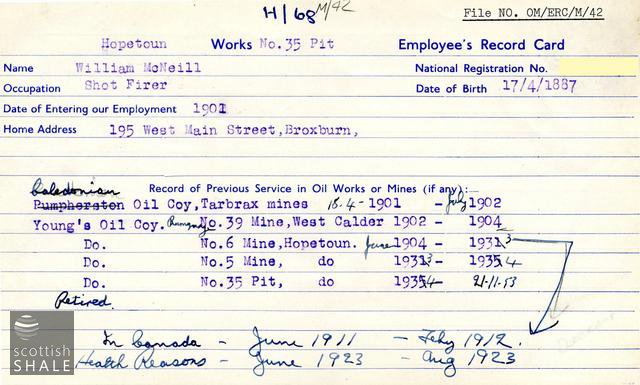 H/68 M/42 File NO. OM/ERC/M/42
Hopetoun Works No.35 Pit Employee's Record Card
Name William McNeill National Registration No.
Occupation Shot Firer Date of Birth 17/4/1887
Date of Entering our Employment 1901
Home Address 195 West Main Street,Broxburn,
Caledonian Record of Previous Service in Oil Works or Mines (if any):—
Pumpherston Oil Coy,Tarbrax mines 18.4-1901 - July 1902
Young's Oil Coy. No.39 Mine,West Calder 1902 - 1904
Do. No.6 Mine,Hopetoun. June 1904 - 1931 3
Do. No.5 Mine, do 1931 3 - 1935 4
Do. No.35 Pit, do 1935 4 - 21-11-53
Retired.
In Canada - June 1911 - Feby 1912.
Health Reasons - June 1923 - Aug 1923
scottish
SHALE